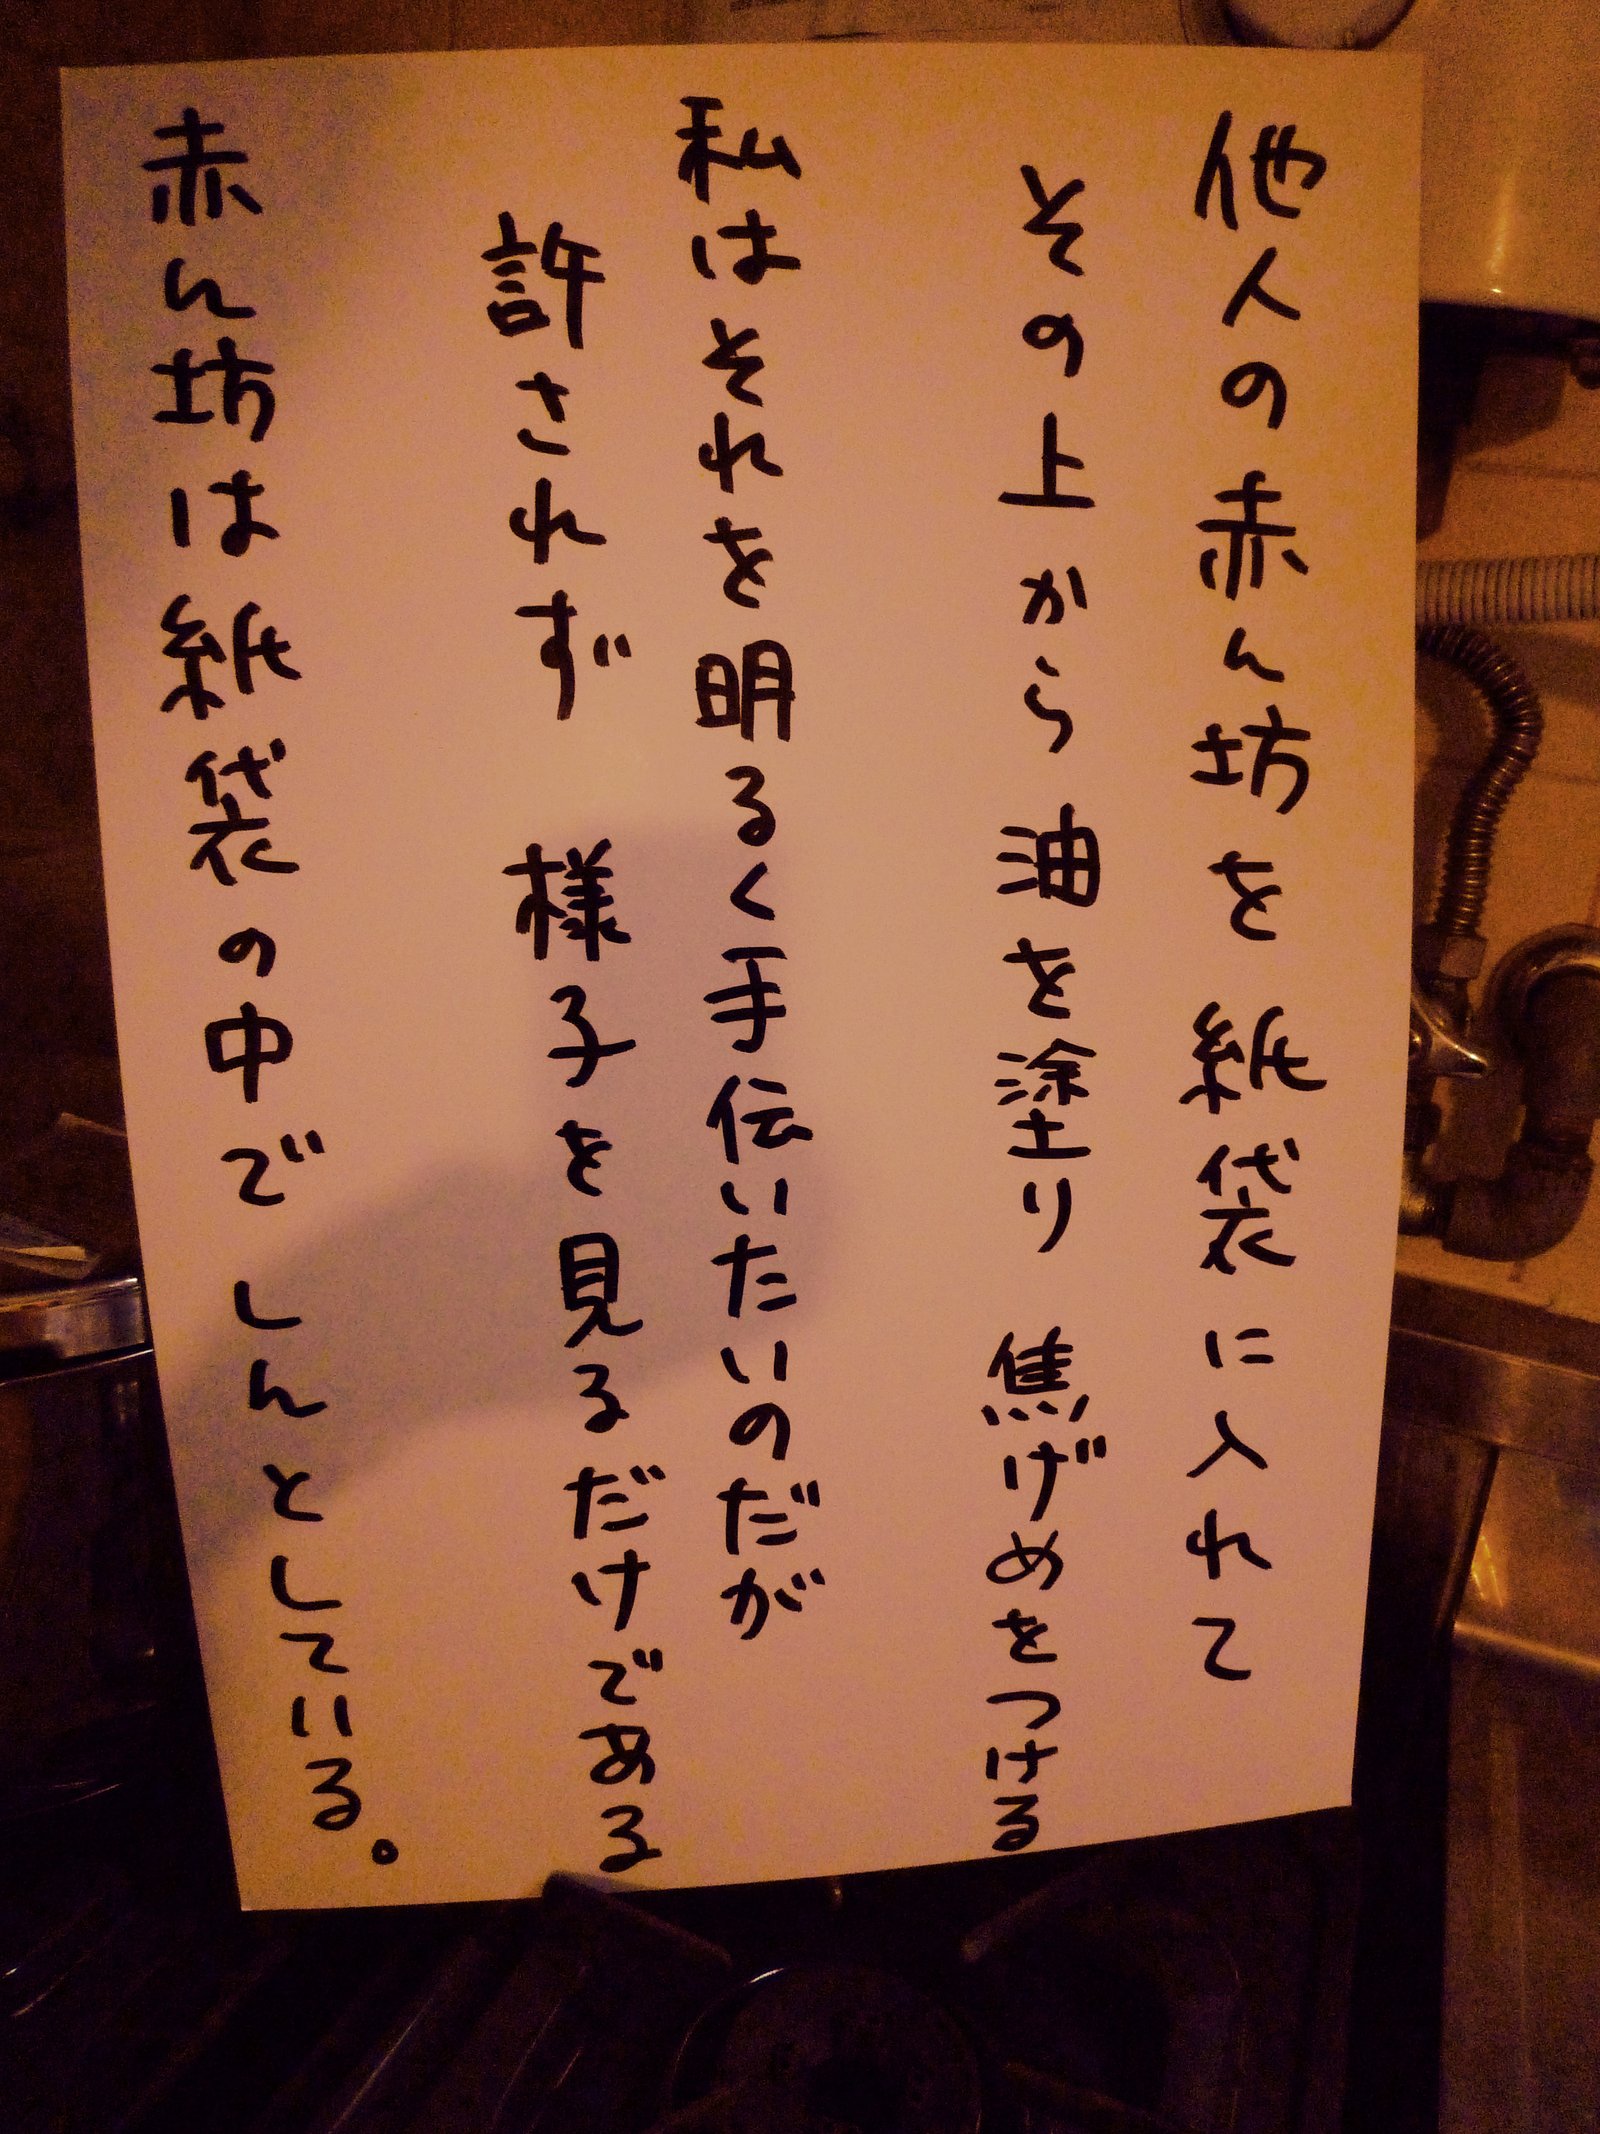 他人の赤ん坊を紙袋に入れて
その上から油を塗り 焦げめをつける
私はそれを明るく手伝いたいのだが
許されず 様子を見るだけである
赤ん坊は紙袋の中で しんとしている。